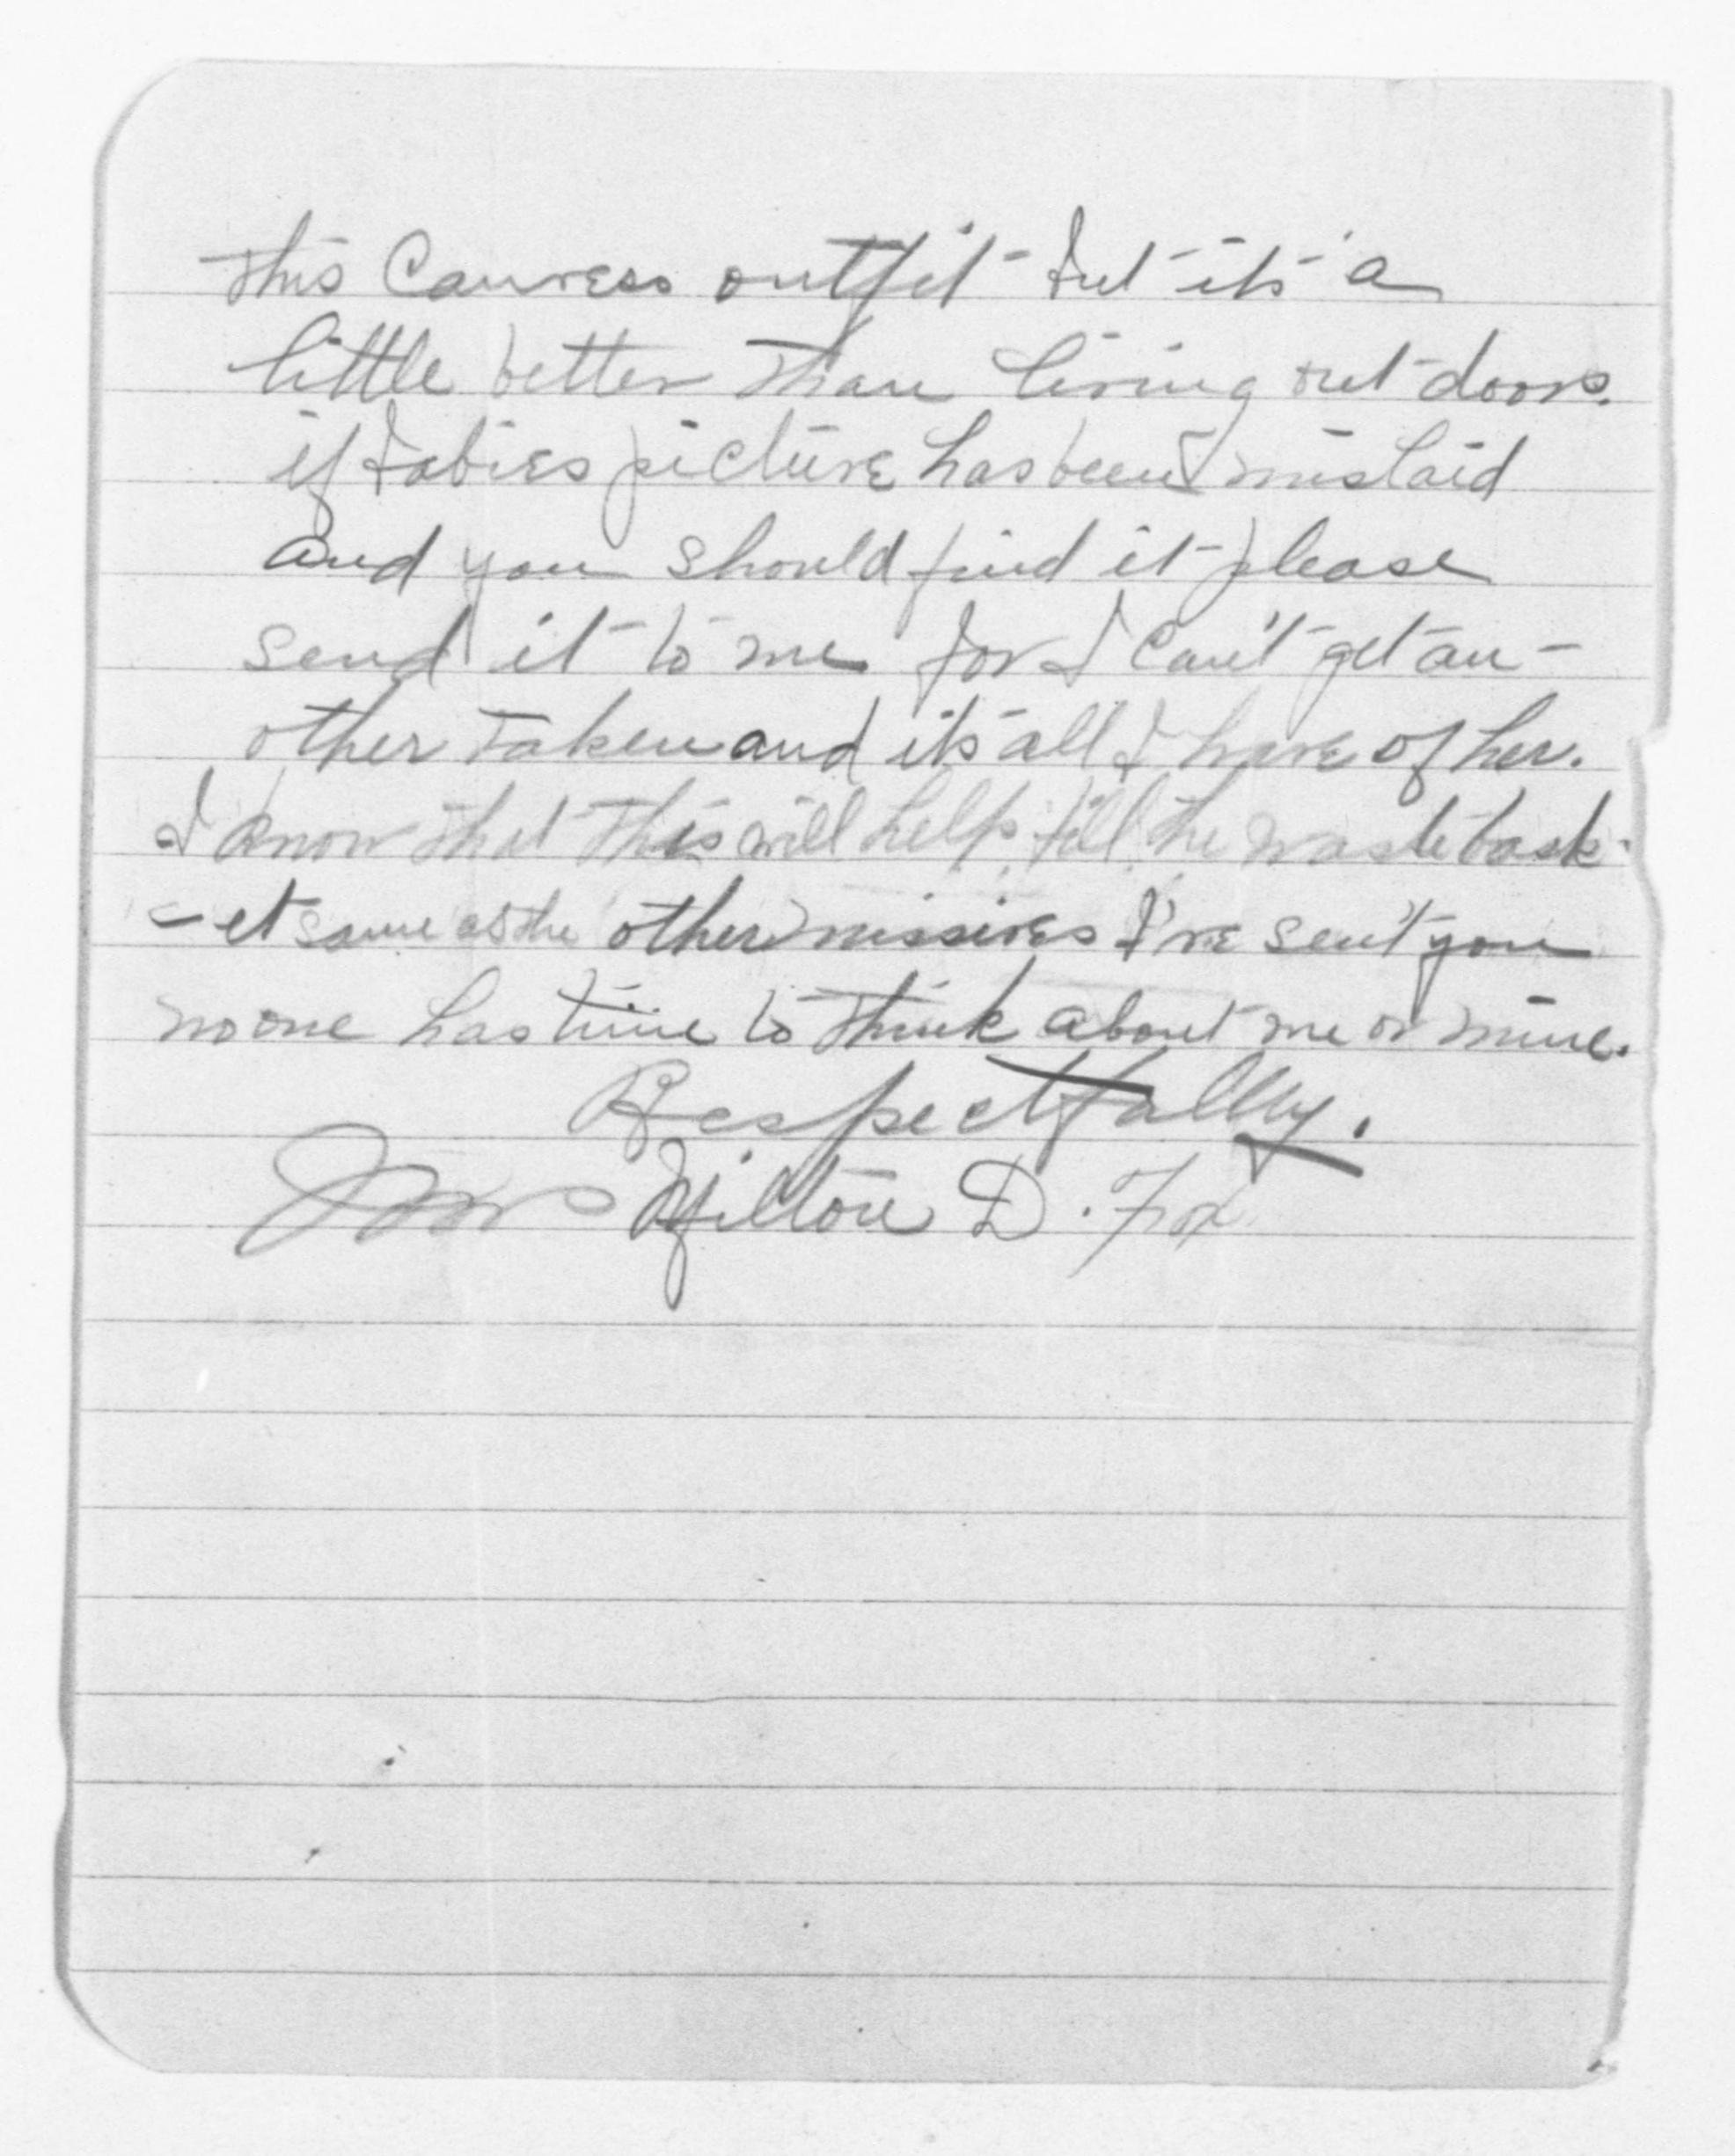 this Canvess outfit but its a
little better than living out doors.
if babies picture has been mislaid
and you should find it please
send it to me for I can't get an-
other taken and its all I have of her.
I know that this will help fill the waste bask-
-et same as the other missives I've sent you
no one has time to think about me or mine.
Respectfully.
Mrs Milton D. Fox